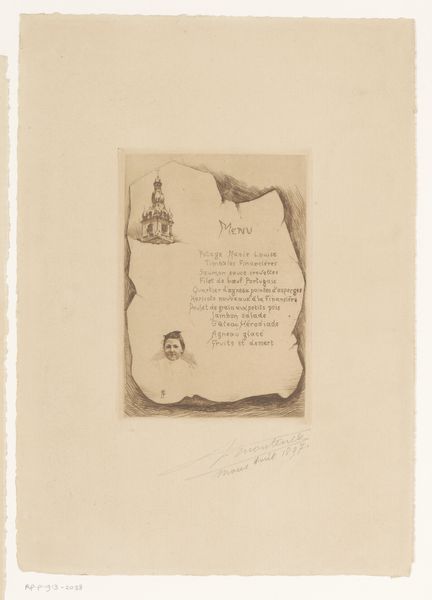 MENU
Potage Marie Louise
Timbales Financières
Saumon sauce crevettes
Filet de bœuf Portugais
Quartier d'agneau pointes d'asperges
Haricots nouveaux à la Financière
Poulet de grain aux petits pois
Jambon salade
Gâteau Hérodiade
Agneau glacé
Fruits et dessert
Mons Août 1897.
RP-P-913-2038